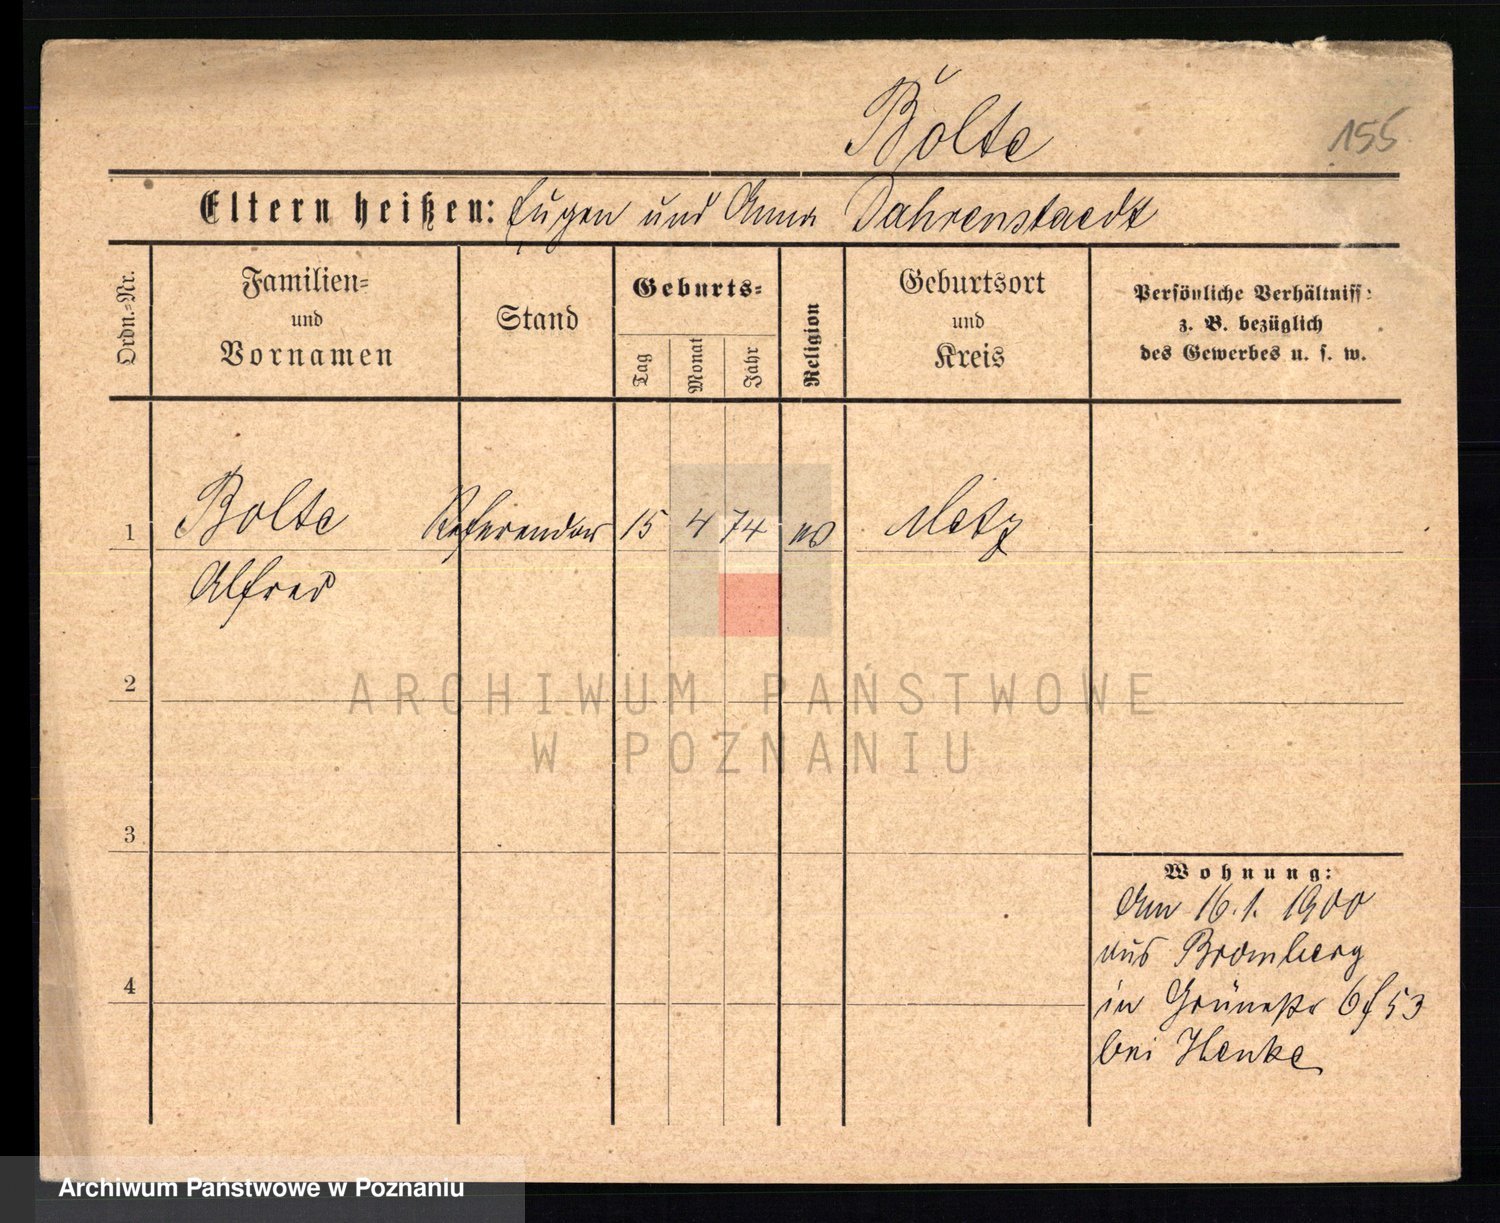 Bolte
155
Eltern heißen: Eugen und Anna Dahrenstaedt
Ordn.-Nr.
Familien-
und
Vornamen
Stand
Geburts-
Tag
Monat
Jahr
Religion
Geburtsort
und
Kreis
Persönliche Verhältniss:
z. B. bezüglich
des Gewerbes u. s. w.
1 Bolte Referendar 15 4 74 ev Metz
Alfred
2
3
4
Wohnung:
Am 16.1. 1900
aus Bromberg
in Grünestr 6 f 53
bei Henke
ARCHIWUM PAŃSTWOWE
W POZNANIU
Archiwum Państwowe w Poznaniu